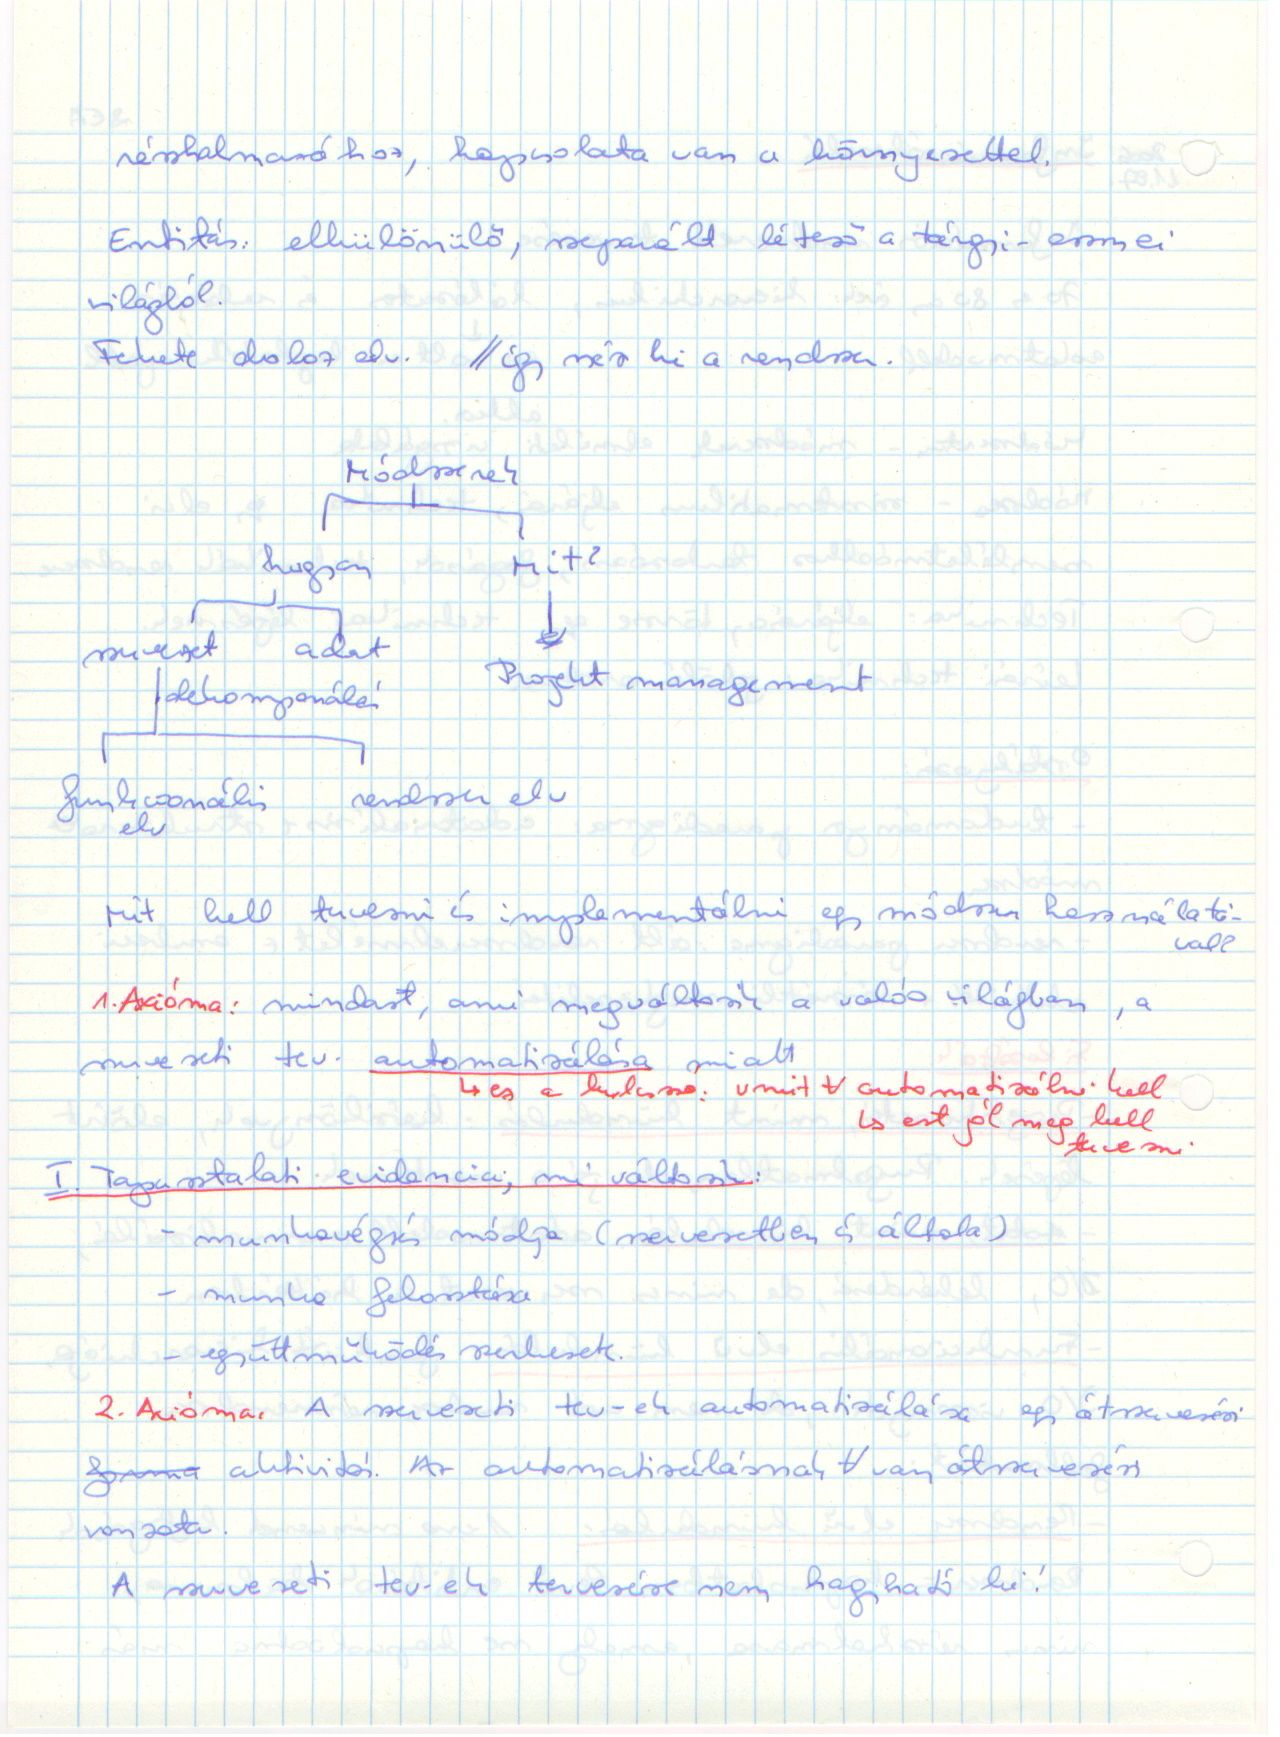 részhalmazához, kapcsolata van a környezettel.
Entitás: elkülönülő, szeparált létező a tárgyi-eszmei
világból.
Fekete doboz elv. // így néz ki a rendszer.
Módszerek
hogyan Mit?
szervezet adat
dekomponálás Projekt management
funkcionális rendszer elv
elv
Mit kell tervezni és implementálni egy módszer használatá-
val?
1. Axióma: mindazt, ami megváltozik a valós világban, a
szervezeti tev. automatizálása miatt
↳ ez a kulcsszó: vmit ∀ automatizálni kell
↳ ezt jól meg kell
tervezni
I. Tapasztalati evidencia, mi változik:
- munkavégzés módja (szervezetben és általa)
- munka felosztása
- együttműködés szerkezete.
2. Axióma. A szervezeti tev-ek automatizálása egy átszervezési
forma aktivitás. Az automatizálásnak ∀ van átszervezési
vonzata.
A szervezeti tev-ek tervezése nem hagyható ki!